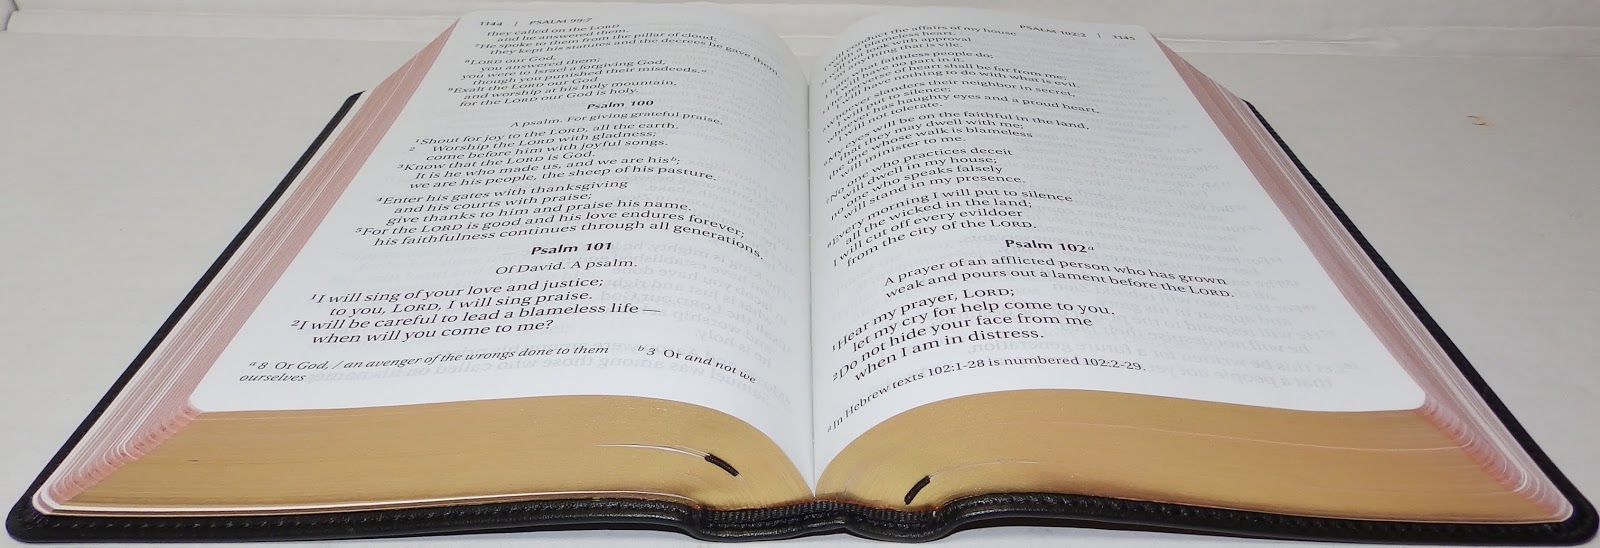 1144 | PSALM 99:7
they called on the LORD
and he answered them.
7He spoke to them from the pillar of cloud;
they kept his statutes and the decrees he gave them.
8LORD our God,
you answered them;
you were to Israel a forgiving God,
though you punished their misdeeds.a
9Exalt the LORD our God
and worship at his holy mountain,
for the LORD our God is holy.
Psalm 100
A psalm. For giving grateful praise.
1Shout for joy to the LORD, all the earth.
2 Worship the LORD with gladness;
come before him with joyful songs.
3Know that the LORD is God.
It is he who made us, and we are hisb;
we are his people, the sheep of his pasture.
4Enter his gates with thanksgiving
and his courts with praise;
give thanks to him and praise his name.
5For the LORD is good and his love endures forever;
his faithfulness continues through all generations.
Psalm 101
Of David. A psalm.
1I will sing of your love and justice;
to you, LORD, I will sing praise.
2I will be careful to lead a blameless life —
when will you come to me?
a 8 Or God, / an avenger of the wrongs done to them b 3 Or and not we
ourselves
PSALM 102:2 | 1145
the affairs of my house
blameless heart.
look with approval
anything that is vile.
what faithless people do;
have no part in it.
of heart shall be far from me;
have nothing to do with what is evil.
slanders their neighbor in secret,
put to silence;
whoever has haughty eyes and a proud heart,
I will not tolerate.
My eyes will be on the faithful in the land,
that they may dwell with me;
the one whose walk is blameless
will minister to me.
No one who practices deceit
will dwell in my house;
no one who speaks falsely
will stand in my presence.
8Every morning I will put to silence
all the wicked in the land;
I will cut off every evildoer
from the city of the LORD.
Psalm 102a
A prayer of an afflicted person who has grown
weak and pours out a lament before the LORD.
1Hear my prayer, LORD;
let my cry for help come to you.
2Do not hide your face from me
when I am in distress.
a In Hebrew texts 102:1-28 is numbered 102:2-29.